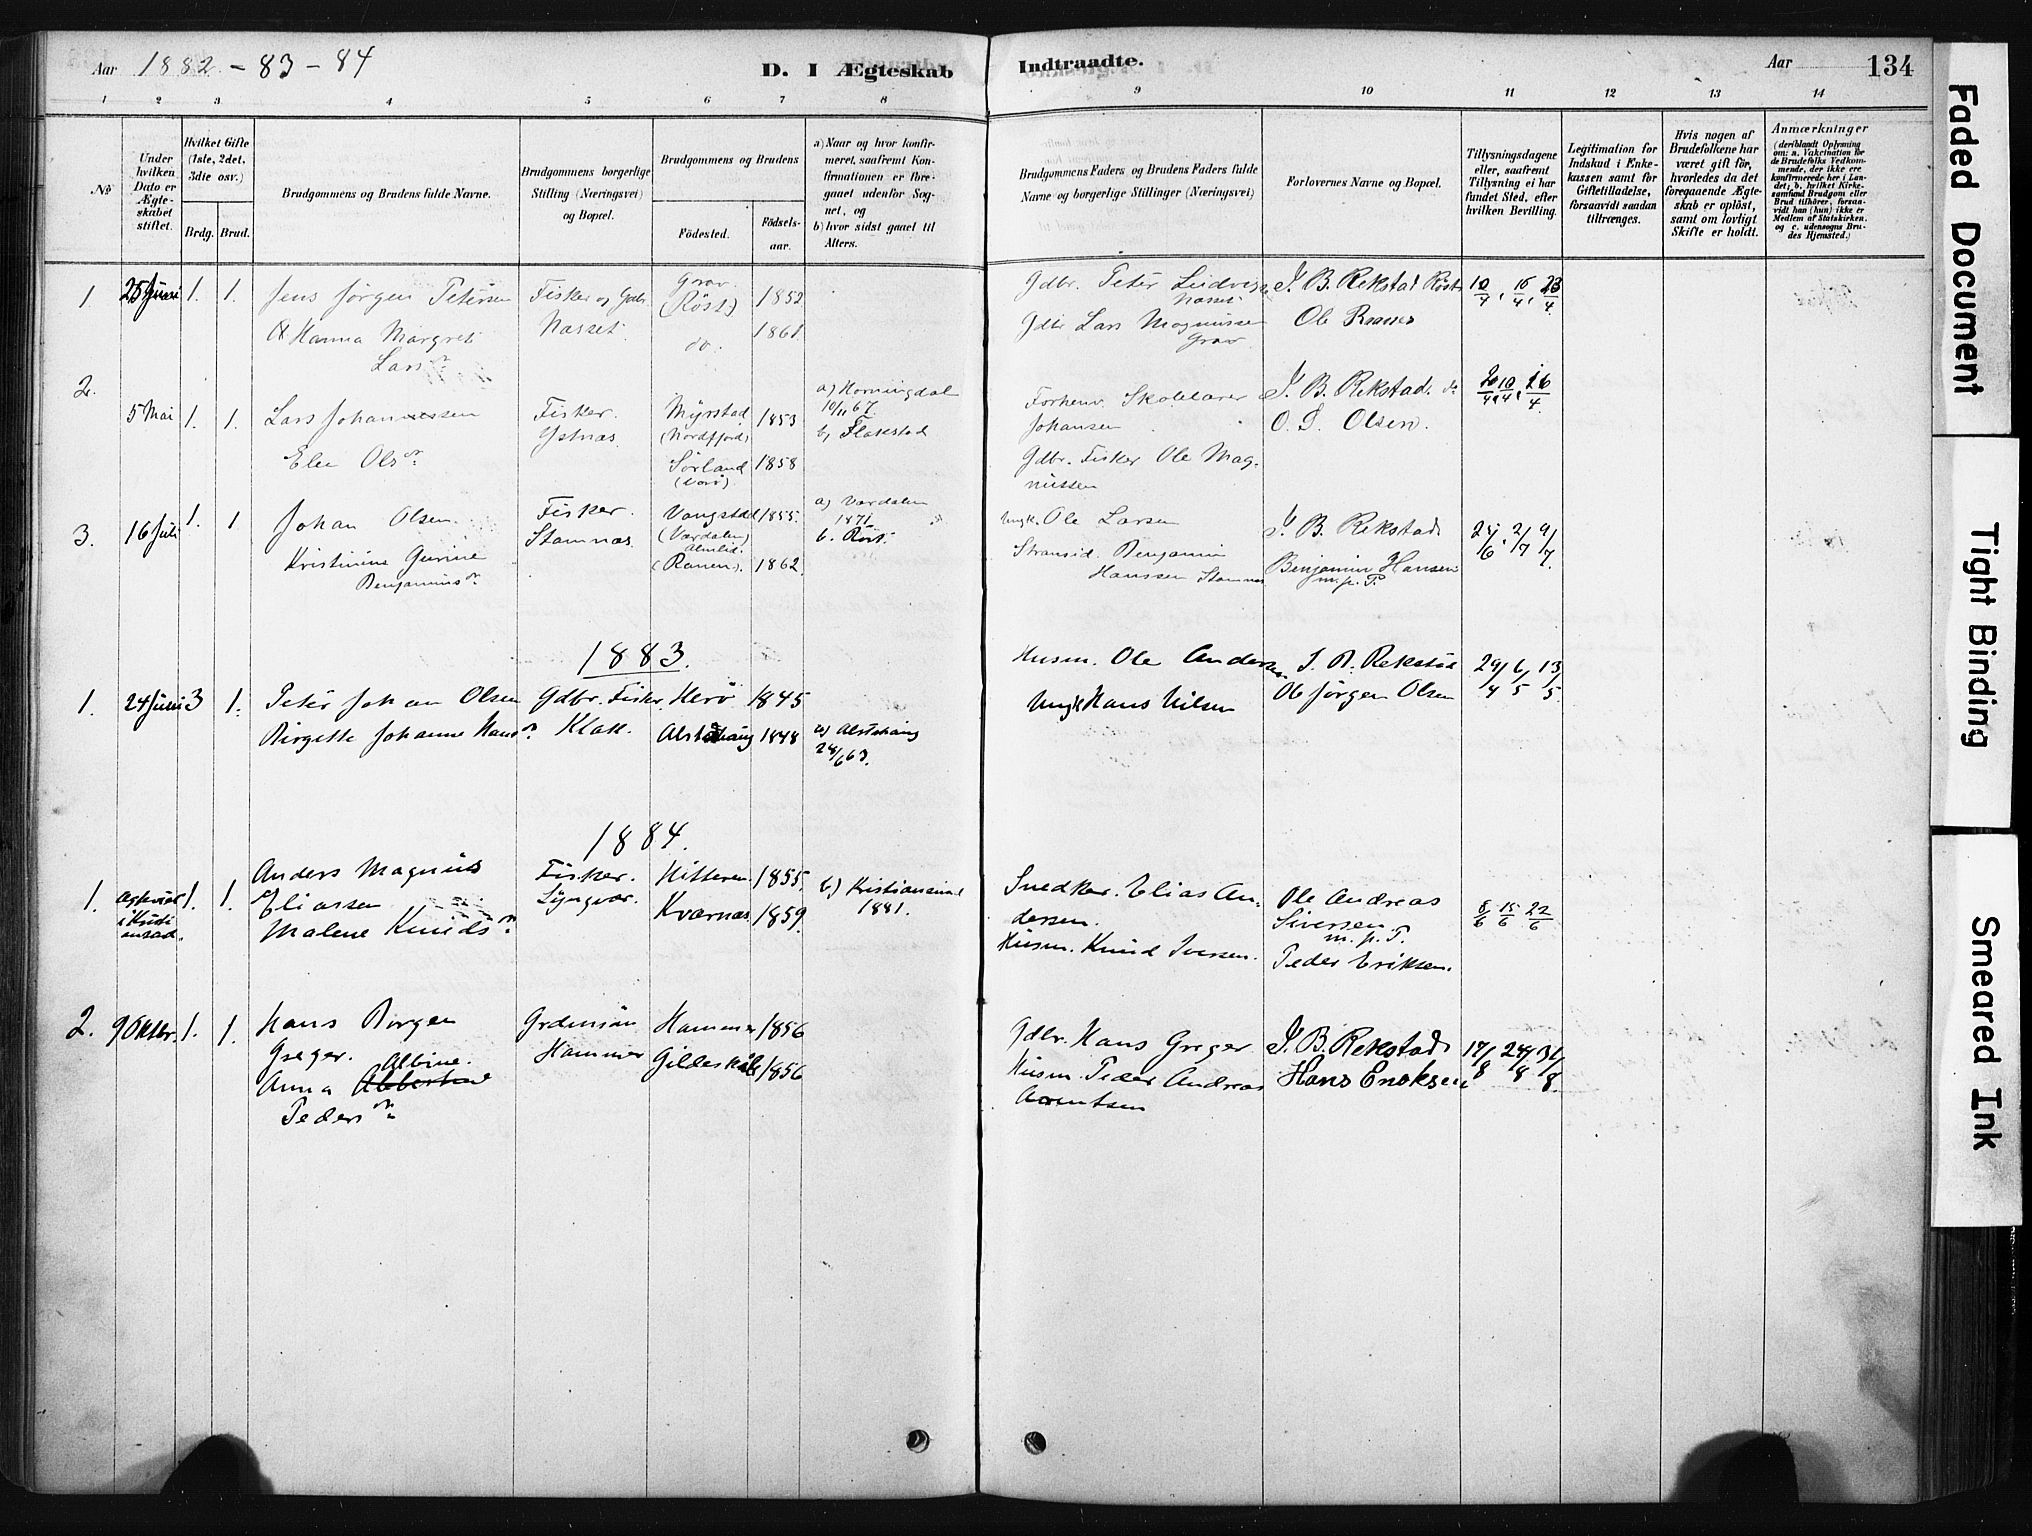 Aar 1882 - 83 - 84
D. I Ægteskab Indtraadte.
Aar 134
1 2 3 4 5 6 7 8 9 10 11 12 13 14
No
Under hvilken Dato er Ægteskabet stiftet.
Hvilket Gifte (1ste, 2det, 3die osv.)
Brdg. Brud.
Brudgommens og Brudens fulde Navne.
Brudgommens borgerlige Stilling (Næringsvei) og Bopæl.
Brudgommens og Brudens
Fødested. Fødselsaar.
a) Naar og hvor konfirmeret, saafremt Konfirmationen er foregaaet udenfor Sognet, og
b) hvor sidst gaaet til Alters.
Brudgommens Faders og Brudens Faders fulde Navne og borgerlige Stillinger (Næringsvei)
Forlovernes Navne og Bopæl.
Tillysningsdagene eller, saafremt Tillysning ei har fundet Sted, efter hvilken Bevilling.
Legitimation for Indskud i Enkekassen samt for Giftetilladelse, forsaavidt saadan tiltrænges.
Hvis nogen af Brudefolkene har været gift før, hvorledes da det foregaaende Ægteskab er opløst, samt om lovligt Skifte er holdt.
Anmærkninger
(deriblandt Oplysning om: a. Vakcination for de Brudefolks Vedkommende, der ikke ere konfirmerede her i Landet; b. hvilket Kirkesamfund Brudgom eller Brud tilhører, forsaavidt han (hun) ikke er Medlem af Statskirken. og c. udensogns Brudes Hjemsted.)
1 25 Juni 1. 1. Jens Jørgen Petersen Fisker og Gdbr. Grav (Røst) 1852 Gdbr. Peter Ludvigsen J. B. Rekstad Røst 10/4, 16/4, 23/4
Nasset
& Hanna Margrete Lars dr. Nasset do. 1861 Gdbr Lars Magnussen Grav Ole
2. 5 Mai 1. 1. Lars Johannessen Fisker. Myrstad (Nordfjord) 1853 a) Horningdal 10/11 67. b, Flakstad Forhenv. Skolelærer Johansen J. B. Rekstad. do
Ystnæs. O. S. Olsen.
Elen Ols dr. Sørland (Værø). 1858 Gdbr. Fisker Ole Magnussen
3. 16 Juli 1. 1 Johan Olsen. Fisker. Vangstad (Værdalen) 1855. a) Værdalen 1871 b. Røst. Ungk. Ole Larsen J. B. Rekstad 25/6, 2/7 9/7.
Stamnæs.
Kristinine Gurine Benjamins dr. (Ranen). 1862 Strandsid. Benjamin Hanssen Stamnæs Benjamin Hansen m. p. P.
1883.
1. 24 Juni 3 1. Peter Johan Olsen Gdbr. Fisker. Herø 1845 Husm. Ole Andersen J. B. Rekstad 29/4 6/5 13/5.
Birgitte Johanne Hans dr. Klak. Alstahaug 1848 a) Alstahaug 24/6 63. Ungk Hans Nilsen Ole Jørgen Olsen
1884.
1. Agteviet i Kristiansund. 1. 1. Anders Magnus Eliassen Fisker. Lyngvær. Hitteren 1855. b.) Kristiansund 1881. Snedker. Elias Andersen. Ole Andreas Siversen m. p. P. 8/6 15/6 22/6
Malene Knuds dr. Kværnæs 1859. Husm. Knud Iversen. Peder Eriksen.
2. 9 Oktbr. 1. 1. Hans Borgen Greger. Hammer Hammer 1856 Gdbr. Hans Greger J. B. Rekstad 17/8 24/8 31/8.
Anna Albertine Albine. Peders dr. Gildeskål 1856 Husm. Peder Andreas Arentsen Hans Enoksen
Faded Document
Tight Binding
Smeared Ink